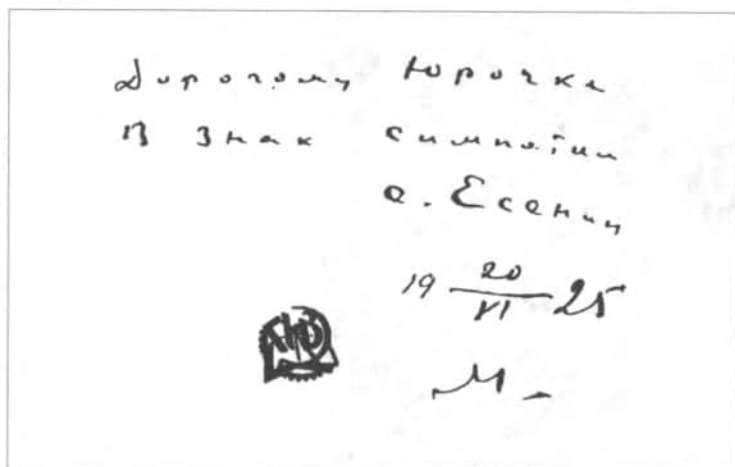 Дорогому Юрочке
В знак симпатии
С. Есенин
19 20/VI 25
М.